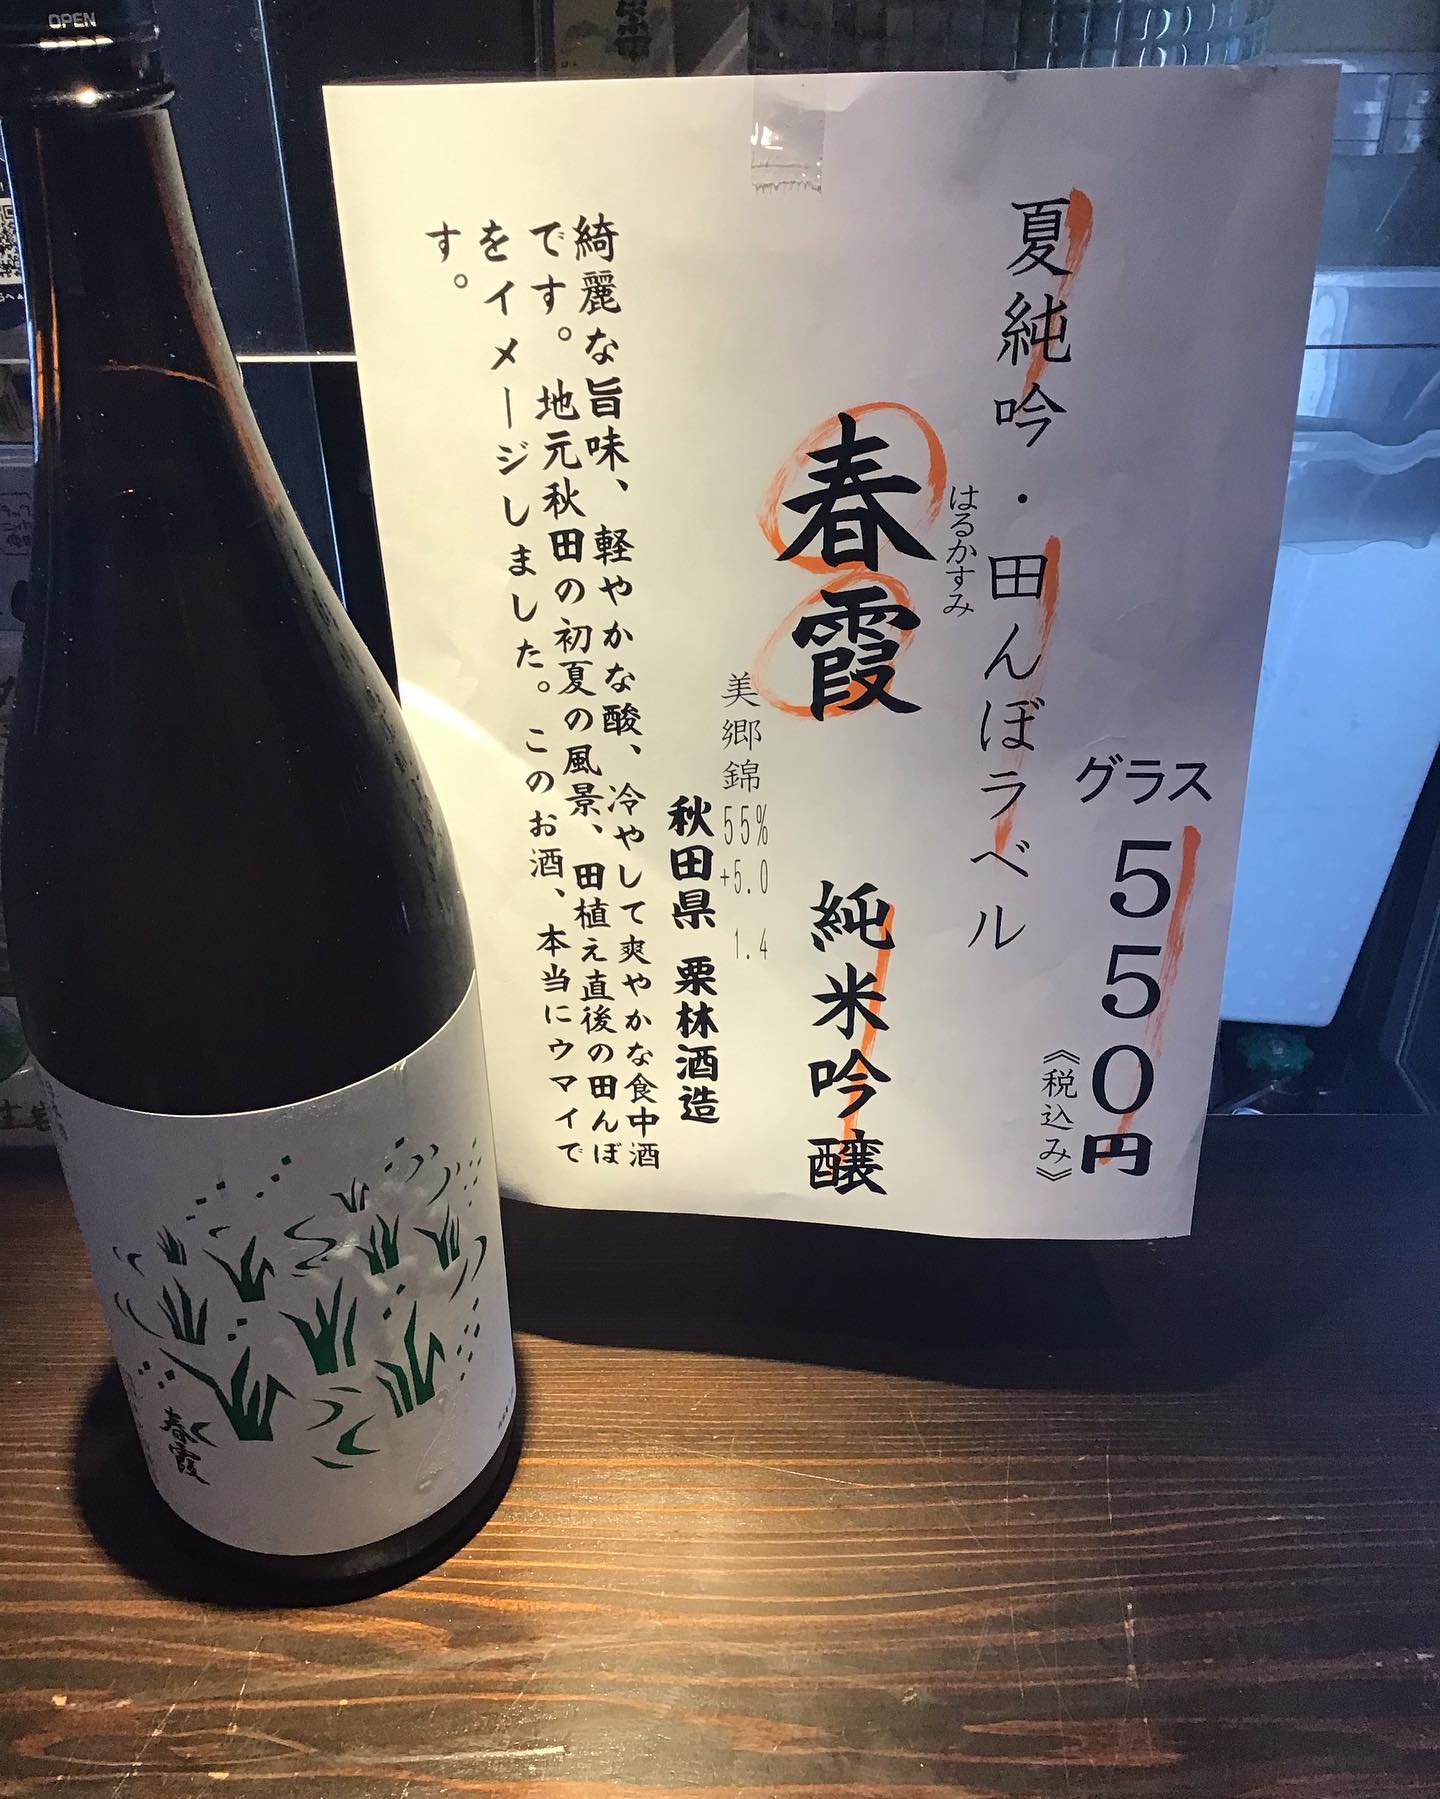 OPEN
グラス
550円
《税込み》
夏純吟・田んぼラベル
はるかすみ
春霞 純米吟醸
美郷錦 55% +5.0 1.4
秋田県 栗林酒造
綺麗な旨味、軽やかな酸、冷やして爽やかな食中酒
です。地元秋田の初夏の風景、田植え直後の田んぼ
をイメージしました。このお酒、本当にウマイで
す。
春霞